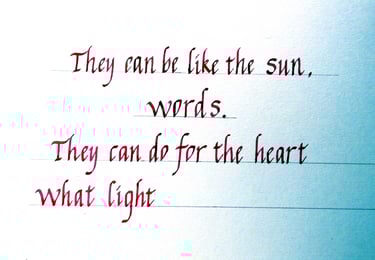 They can be like the sun,
words.
They can do for the heart
what light